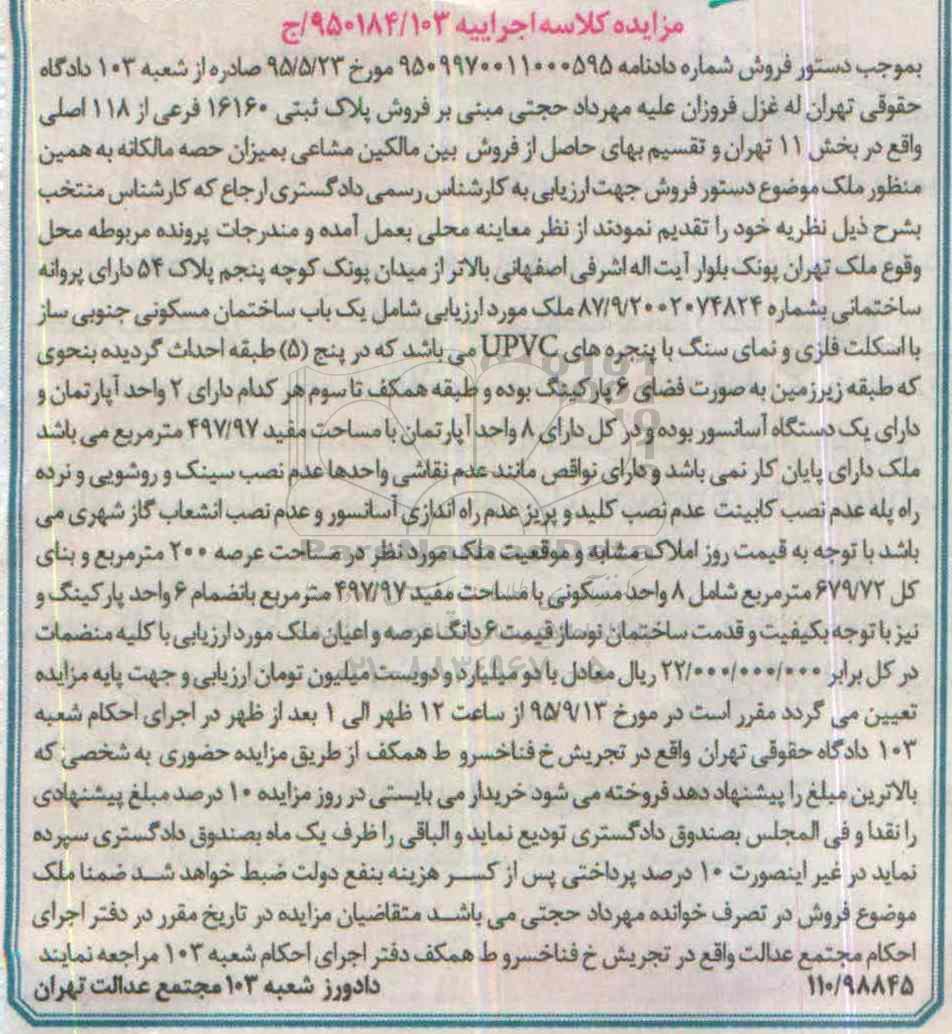 مزایده کلاسه اجراییه ۹۵۰۱۸۴/۱۰۳/ج
بموجب دستور فروش شماره دادنامه ۹۵۰۹۹۷۰۰۱۱۰۰۰۵۹۵ مورخ ۹۵/۵/۲۳ صادره از شعبه ۱۰۳ دادگاه
حقوقی تهران له غزل فروزان علیه مهرداد حجتی مبنی بر فروش پلاک ثبتی ۱۶۱۶۰ فرعی از ۱۱۸ اصلی
واقع در بخش ۱۱ تهران و تقسیم بهای حاصل از فروش بین مالکین مشاعی بمیزان حصه مالکانه به همین
منظور ملک موضوع دستور فروش جهت ارزیابی به کارشناس رسمی دادگستری ارجاع که کارشناس منتخب
بشرح ذیل نظریه خود را تقدیم نمودند از نظر معاینه محلی بعمل آمده و مندرجات پرونده مربوطه محل
وقوع ملک تهران پونک بلوار آیت اله اشرفی اصفهانی بالاتر از میدان پونک کوچه پنجم پلاک ۵۴ دارای پروانه
ساختمانی بشماره ۸۷/۹/۲۰۰۲۰۷۴۸۲۴ ملک مورد ارزیابی شامل یک باب ساختمان مسکونی جنوبی ساز
با اسکلت فلزی و نمای سنگ با پنجره های UPVC می باشد که در پنج (۵) طبقه احداث گردیده بنحوی
که طبقه زیرزمین به صورت فضای ۶ پارکینگ بوده و طبقه همکف تا سوم هر کدام دارای ۲ واحد آپارتمان و
دارای یک دستگاه آسانسور بوده و در کل دارای ۸ واحد آپارتمان با مساحت مفید ۴۹۷/۹۷ مترمربع می باشد
ملک دارای پایان کار نمی باشد و دارای نواقص مانند عدم نقاشی واحدها عدم نصب سینک و روشویی و نرده
راه پله عدم نصب کابینت عدم نصب کلید و پریز عدم راه اندازی آسانسور و عدم نصب انشعاب گاز شهری می
باشد با توجه به قیمت روز املاک مشابه و موقعیت ملک مورد نظر در مساحت عرصه ۲۰۰ مترمربع و بنای
کل ۶۷۹/۷۲ مترمربع شامل ۸ واحد مسکونی با مساحت مفید ۴۹۷/۹۷ مترمربع بانضمام ۶ واحد پارکینگ و
نیز با توجه بکیفیت و قدمت ساختمان نوساز قیمت ۶ دانگ عرصه و اعیان ملک مورد ارزیابی با کلیه منضمات
در کل برابر ۲۲/۰۰۰/۰۰۰/۰۰۰ ریال معادل با دو میلیارد و دویست میلیون تومان ارزیابی و جهت پایه مزایده
تعیین می گردد مقرر است در مورخ ۹۵/۹/۱۳ از ساعت ۱۲ ظهر الی ۱ بعد از ظهر در اجرای احکام شعبه
۱۰۳ دادگاه حقوقی تهران واقع در تجریش خ فناخسرو ط همکف از طریق مزایده حضوری به شخصی که
بالاترین مبلغ را پیشنهاد دهد فروخته می شود خریدار می بایستی در روز مزایده ۱۰ درصد مبلغ پیشنهادی
را نقدا و فی المجلس بصندوق دادگستری تودیع نماید و الباقی را ظرف یک ماه بصندوق دادگستری سپرده
نماید در غیر اینصورت ۱۰ درصد پرداختی پس از کسر هزینه بنفع دولت ضبط خواهد شد ضمنا ملک
موضوع فروش در تصرف خوانده مهرداد حجتی می باشد متقاضیان مزایده در تاریخ مقرر در دفتر اجرای
احکام مجتمع عدالت واقع در تجریش خ فناخسرو ط همکف دفتر اجرای احکام شعبه ۱۰۳ مراجعه نمایند
۱۱۰/۹۸۸۴۵ دادورز شعبه ۱۰۳ مجتمع عدالت تهران